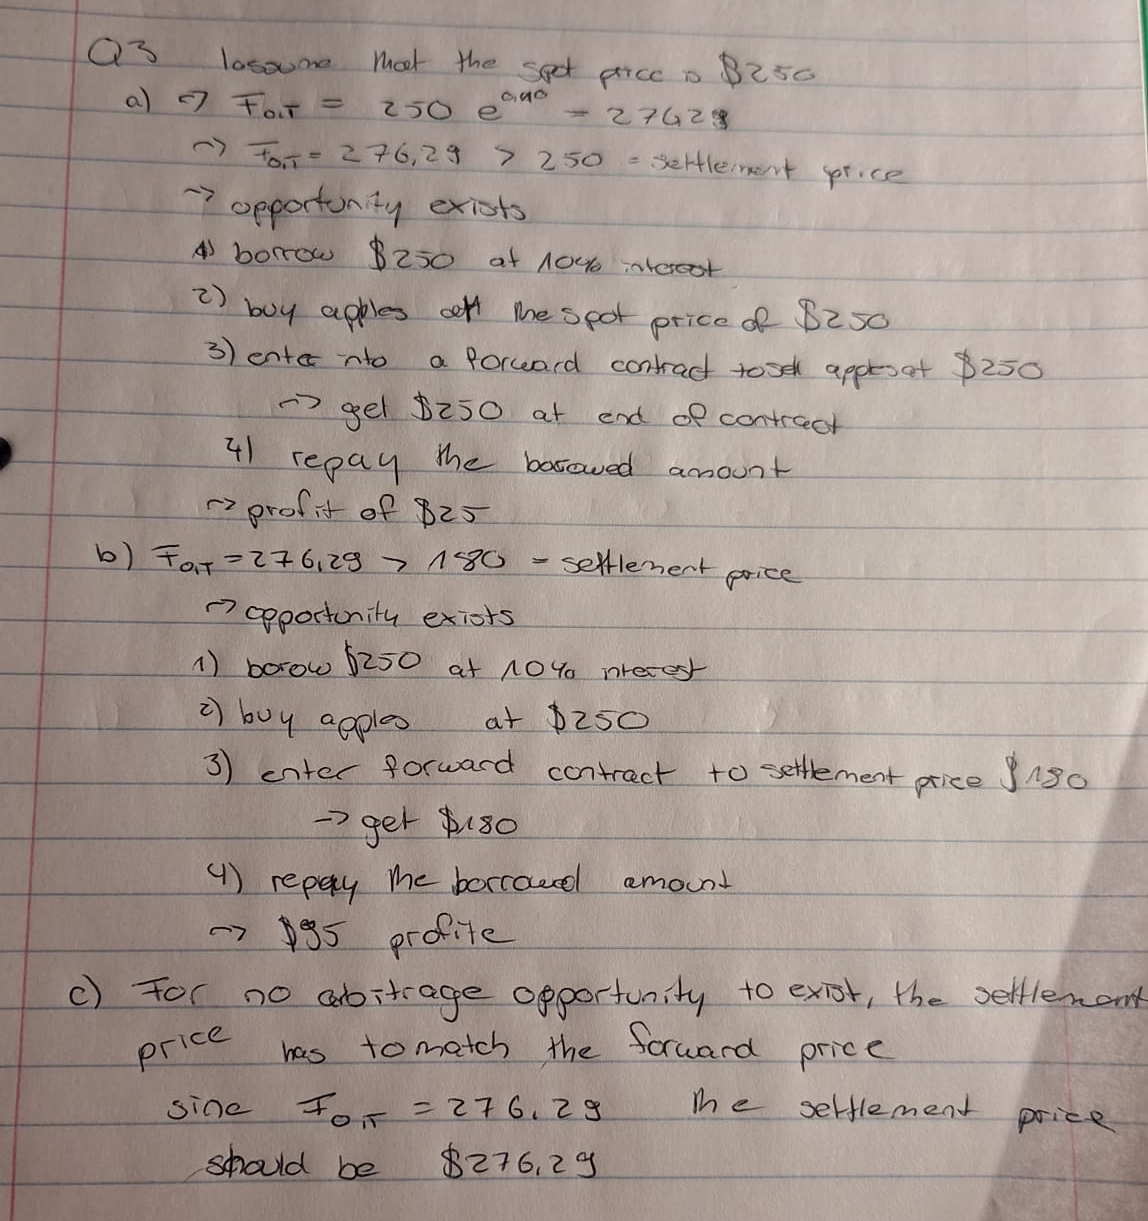 Q3 Assume that the spot price is $250
a) => F0,T = 250 e^0,10 = 276,29
~> F0,T = 276,29 > 250 = settlement price
~> opportunity exists
1) borrow $250 at 10% interest
2) buy apples at the spot price of $250
3) enter into a forward contract to sell apples at $250
~> get $250 at end of contract
4) repay the borowed amount
~> profit of $25
b) F0,T = 276,29 > 180 = settlement price
~> opportunity exists
1) borow $250 at 10% interest
2) buy apples at $250
3) enter forward contract to settlement price $180
-> get $180
4) repay the borrowed amount
~> $95 profite
c) For no arbitrage opportunity to exist, the settlement
price has to match the forward price
sine F0,T = 276.29 the settlement price
should be $276,29